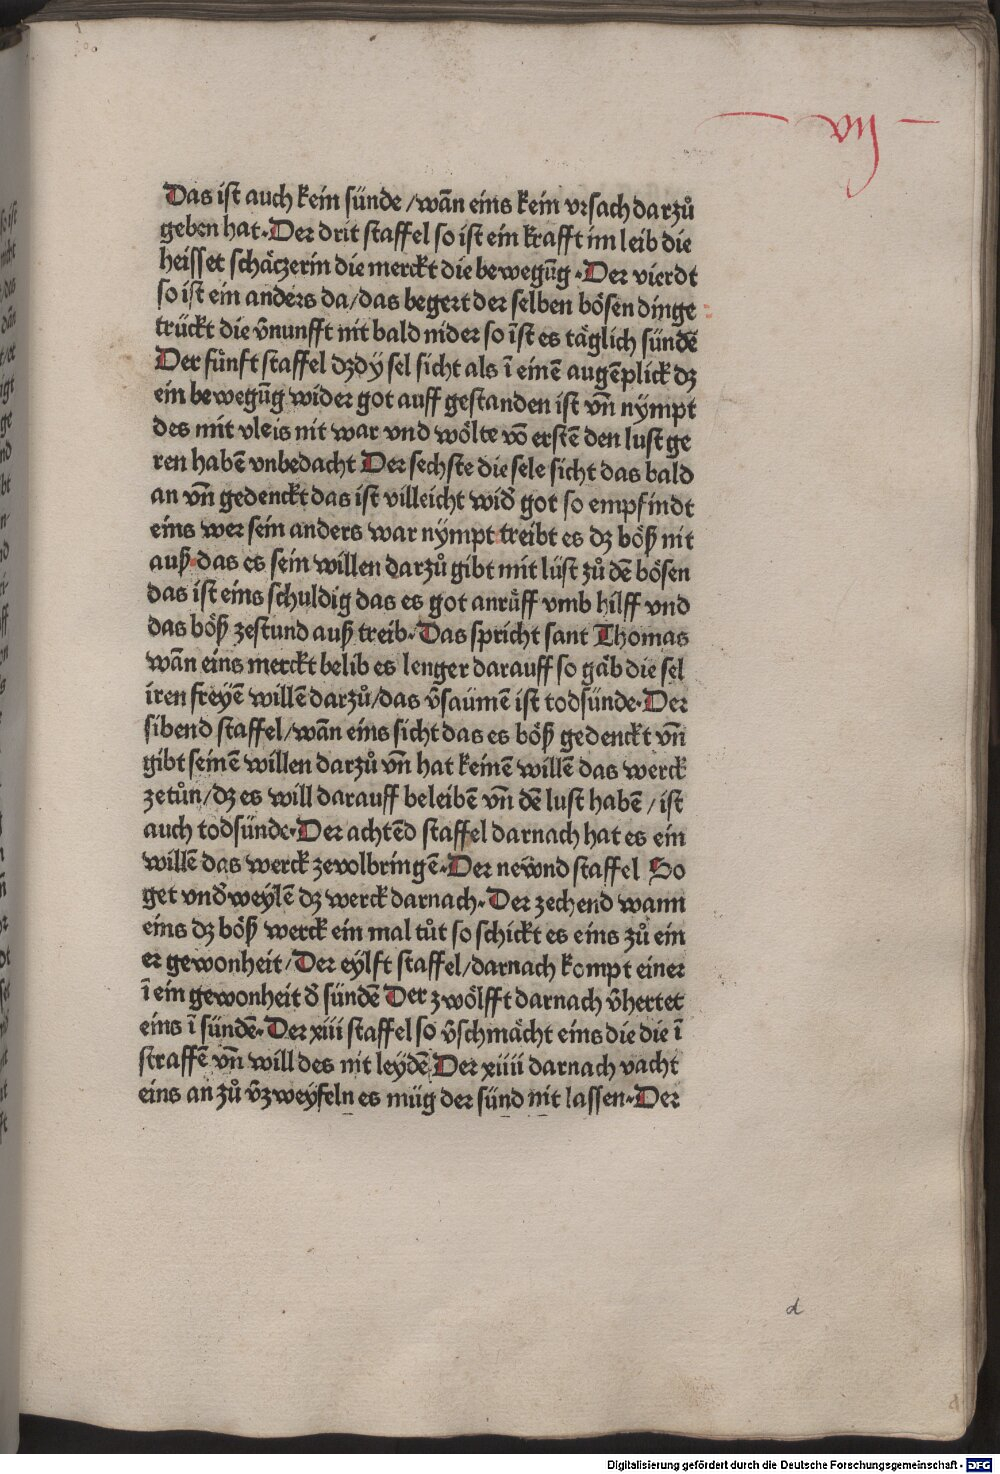 vij
Das ist auch kein sünde /wañ eins kein vrsach darzů
geben hat. Der drit staffel so ist ein krafft im leib die
heisset schäczerin die merckt die bewegūg. Der vierdt
so ist ein anders da/das begert der selben bösen dinge
trückt die v̄nunfft nit bald nider so īst es täglich sündē
Der fünft staffel dꝫ dy sel sicht als ī einē augēplick dꝫ
ein bewegūg wider got auff gestanden ist vn̄ nympt
des mit vleis nit war vnd wölte vō erstē den lust ge
ren habē vnbedacht Der sechste die sele sicht das bald
an vn̄ gedenckt das ist villeicht wid̄ got so empfindt
eins wer sein anders war nympt treibt es dꝫ böß nit
auß.das es sein willen darzů gibt mit lüst zů dē bösen
das ist eins schuldig das es got anrüff vmb hilff vnd
das böß zestund auß treib. Das spricht sant Thomas
wān eins merckt belib es lenger darauff so gäb die sel
iren freyē willē darzů/das v̄saümē ist todsünde. Der
sibend staffel/wān eins sicht das es böß gedenckt vn̄
gibt seinē willen darzů vn̄ hat keinē willē das werck
zetůn/dꝫ es will darauff beleibē vn̄ dē lust habē/ist
auch todsünde. Der achtēd staffel darnach hat es ein
willē das werck zevolbringē. Der new̄nd staffel So
get vnd̄weylē dꝫ werck darnach. Der zechend wann
eins dꝫ böß werck ein mal tůt so schickt es eins zů ein
er gewonheit/Der eylft staffel/darnach kompt einer
ī ein gewonheit d̄ sündē Der zwölfft darnach v̄hertet
eins ī sündē. Der xiii staffel so v̄schmächt eins die die ī
straffē vn̄ will des nit leydē Der xiiii darnach vacht
eins an zů v̄zweyfeln es müg der sünd nit lassen. Der
d
Digitalisierung gefördert durch die Deutsche Forschungsgemeinschaft - DFG